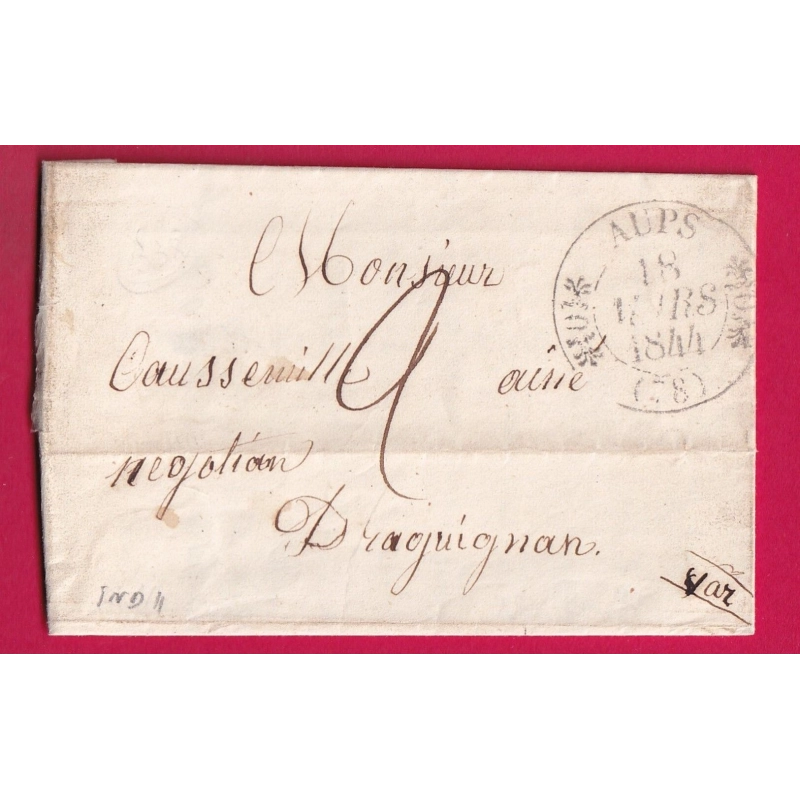 Monsieur
Caussemille ainé
negotian
Draguignan.
Var
2
AUPS
18
MARS
1844
(78)
IND 11